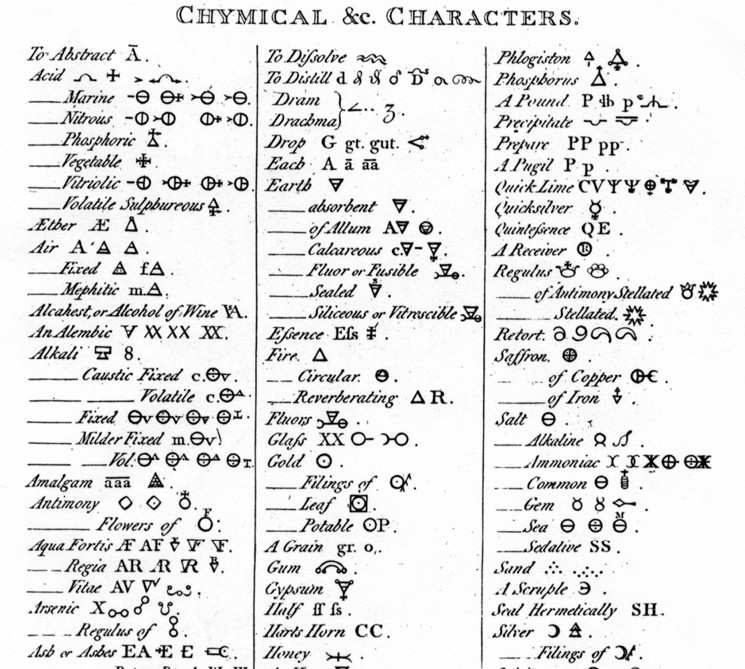 CHYMICAL &c. CHARACTERS.
To Abstract Ā.
Acid
Marine
Nitrous
Phosphoric
Vegetable
Vitriolic
Volatile Sulphureous
Æther Æ
Air A
Fixed f
Mephitic m.
Alcahest, or Alcohol of Wine
An Alembic XX XX XX.
Alkali 8.
Caustic Fixed c.
Volatile c.
Fixed
Milder Fixed m.
Vol.
Amalgam aaa
Antimony
Flowers of
Aqua Fortis Æ AF
Regia AR
Vitae AV
Arsenic
Regulus of
Ash or Ashes EA E
To Dissolve
To Distill
Dram
Drachma
Drop G gt. gut.
Each A ā āā
Earth
absorbent
of Allum A
Calcareous c.
Fluor or Fusible
Sealed
Siliceous or Vitrescible
Essence Eſs
Fire.
Circular.
Reverberating R.
Fluors
Glaſs XX
Gold
Filings of
Leaf
Potable P.
A Grain gr.
Gum
Gypsum
Half ſſ ſs.
Harts Horn CC.
Honey
Phlogiston
Phosphorus
A Pound
Precipitate
Prepare PP pp.
A Pugil P p.
Quick Lime CV
Quicksilver
Quinteſsence QE.
A Receiver
Regulus
of Antimony Stellated
Stellated.
Retort.
Saffron.
of Copper
of Iron
Salt
Alkaline
Ammoniac
Common
Gem
Sea
Sedative SS.
Sand
A Scruple
Seal Hermetically SH.
Silver
Filings of